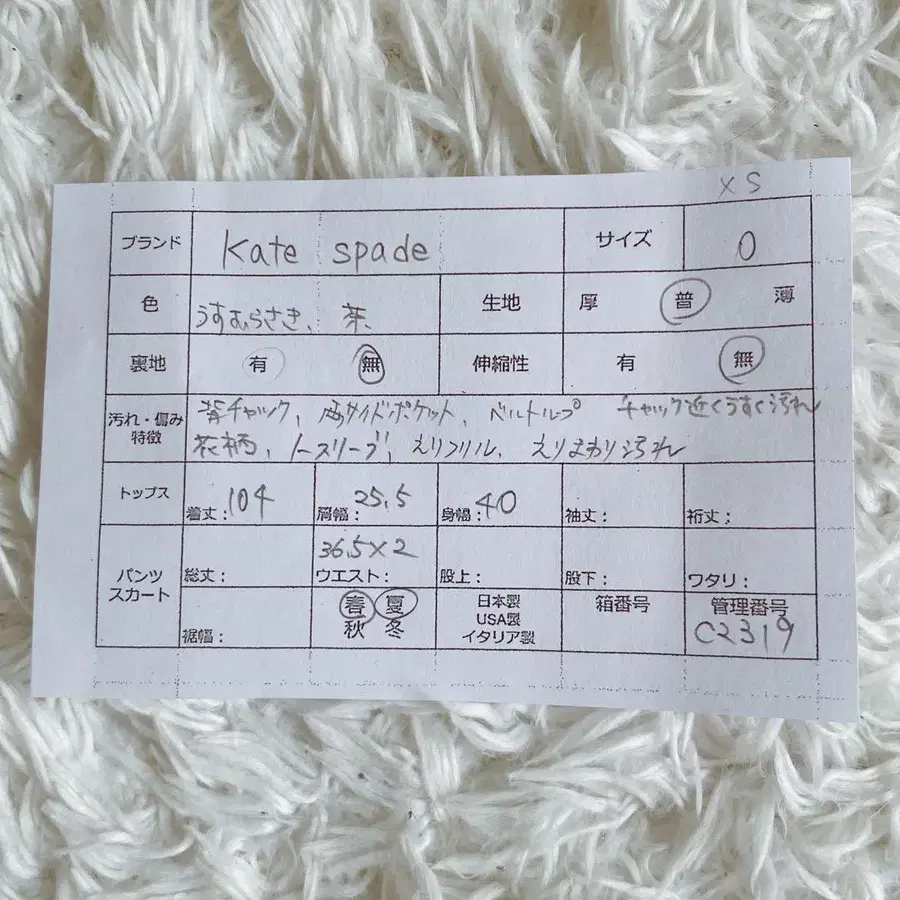 XS
ブランド Kate spade サイズ 0
色 うすむらさき、茶 生地 厚 普 薄
裏地 有 無 伸縮性 有 無
汚れ・傷み 背チャック、両サイドポケット、ベルトループ チャック近くうすく汚れ
特徴 花柄、ノースリーブ、えりフリル、えりまわり汚れ
トップス 着丈:104 肩幅:25.5 身幅:40 袖丈: 裄丈:
36.5×2
パンツ スカート 総丈: ウエスト: 股上: 股下: ワタリ:
裾幅: 春 夏 秋 冬 日本製 USA製 イタリア製 箱番号 管理番号
C2319